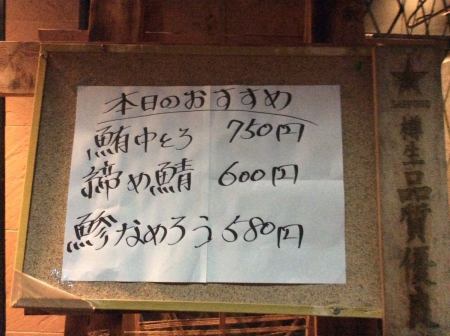 本日のおすすめ
鮪中とろ 750円
締め鯖 600円
鯵なめろう 580円
SAPPORO
樽生品質優良